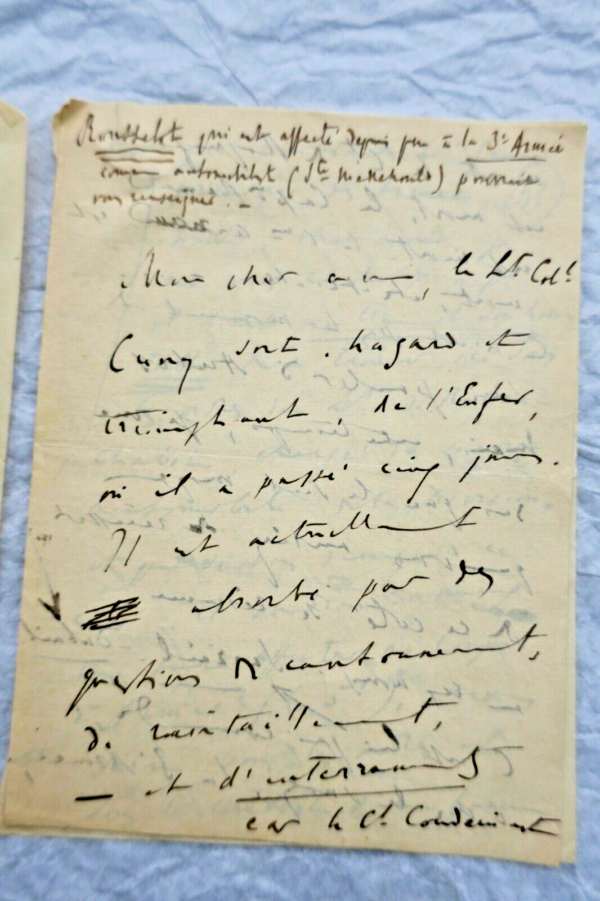 Rousselot qui est affecté depuis peu à la 3e Armée
comme automobilist (Ste Menehould) pourrait
vous renseigner. —
Mon cher ami, le Lt Coll
Cuny sort, hagard et
triomphant, de l'Enfer,
où il a passé cinq jours.
Il est actuellement
absorbé par des
questions de cantonnement,
de ravitaillement,
— et d'enterrements
car le Ct